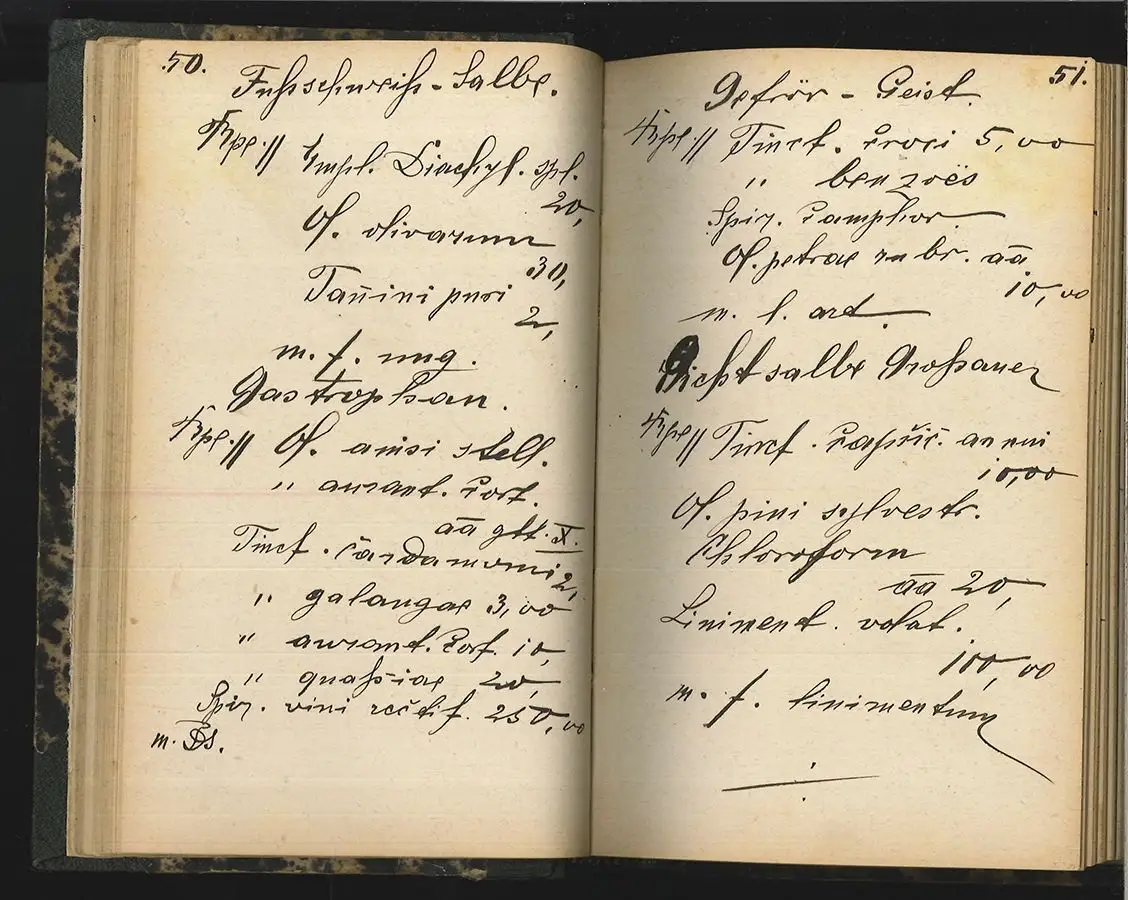 50.
Fußschweiß-Salbe.
Rpe.//
Empl. Diachyl. spl.
20,
Ol. olivarum
30,
Tan̄ini puri
2,
m. f. ung.
Gastrophan.
Rpe.// Ol. anisi stell.
" aurant. Cort.
aa gtt. X.
Tinct. Cardamomi 2,
" galangae 3,00
" aurant. Cort. 10,
" quaßiae 20,
Spir. vini rectif. 250,00
m. Ds.
51.
Gefrör-Geist.
Rpe// Tinct. Croci 5,00
" benzoës
Spir. Camphor
Ol. petrae rubr. aa
10,00
m. l. art.
Gichtsalbe Großauer
Rpe// Tinct. Capsic. annui
10,00
Ol. pini sylvestr.
Chloroform
aa 20,
Liniment. volat.
100,00
m. f. linimentum